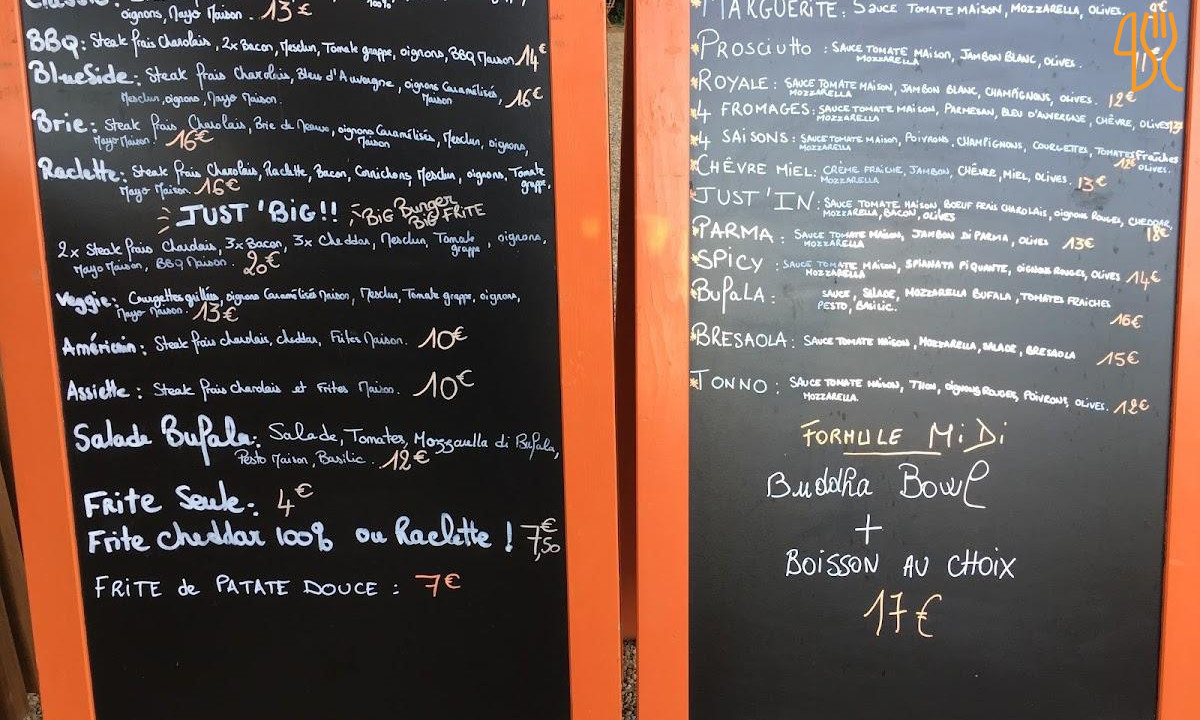 Classic:
100%
oignons, Mayo Maison. 13€
BBQ: Steak frais Charolais, 2x Bacon, Mesclun, Tomate grappe, oignons, BBQ Maison. 14€
BlueSide: Steak frais Charolais, Bleu d'Auvergne, oignons Caramélisés Maison,
Mesclun, oignons, Mayo Maison. 16€
Brie: Steak frais Charolais, Brie de Meaux, oignons Caramélisés Maison, Mesclun, oignons,
Mayo Maison. 16€
Raclette: Steak frais Charolais, Raclette, Bacon, Cornichons, Mesclun, oignons, Tomate grappe,
Mayo Maison. 16€
JUST 'BiG!! BiG Burger BiG FRiTE
2x Steak frais Charolais, 3x Bacon, 3x Cheddar, Mesclun, Tomate grappe, oignons,
Mayo Maison, BBQ Maison. 20€
Veggie: Courgettes grillées, oignons Caramélisés Maison, Mesclun, Tomate grappe, oignons,
Mayo Maison. 13€
Américain: Steak frais charolais, cheddar, Frites Maison. 10€
Assiette: Steak frais Charolais et Frites Maison. 10€
Salade Bufala: Salade, Tomates, Mozzarella di Bufala,
Pesto Maison, Basilic. 12€
Frite Seule: 4€
Frite cheddar 100% ou Raclette! 7,50€
FRiTE de PATATE DOUCE : 7€
MARGUERiTE: SAUCE TOMATE MAISON, MOZZARELLA, OLIVES.
PROSCIUTTO : SAUCE TOMATE MAISON, JAMBON BLANC, OLIVES.
MOZZARELLA
ROYALE: SAUCE TOMATE MAISON, JAMBON BLANC, CHAMPIGNONS, OLIVES. 12€
MOZZARELLA
4 FROMAGES: SAUCE TOMATE MAISON, PARMESAN, BLEU D'AUVERGNE, CHÈVRE, OLIVES
MOZZARELLA
4 SAISONS: SAUCE TOMATE MAISON, POIVRONS, CHAMPIGNONS, COURGETTES, TOMATES FRAÎCHES
MOZZARELLA 12€ OLIVES.
CHÈVRE MIEL: CRÈME FRAÎCHE, JAMBON, CHÈVRE, MIEL, OLIVES. 13€
MOZZARELLA
JUST 'IN: SAUCE TOMATE MAISON, BOEUF FRAIS CHAROLAIS, OIGNONS ROUGES, CHEDDAR,
MOZZARELLA, BACON, OLIVES 18€
PARMA: SAUCE TOMATE MAISON, JAMBON DI PARMA, OLIVES 13€
MOZZARELLA
SPICY : SAUCE TOMATE MAISON, SPIANATA PIQUANTE, OIGNONS ROUGES, OLIVES 14€
MOZZARELLA
BUFALA: SAUCE, SALADE, MOZZARELLA BUFALA, TOMATES FRAICHES
PESTO, BASILIC.
16€
BRESAOLA: SAUCE TOMATE MAISON, MOZZARELLA, SALADE, BRESAOLA 15€
TONNO: SAUCE TOMATE MAISON, THON, OIGNONS ROUGES, POIVRONS, OLIVES. 12€
MOZZARELLA.
FORMULE MiDi
Buddha Bowl
+
BOISSON AU CHOIX
17€